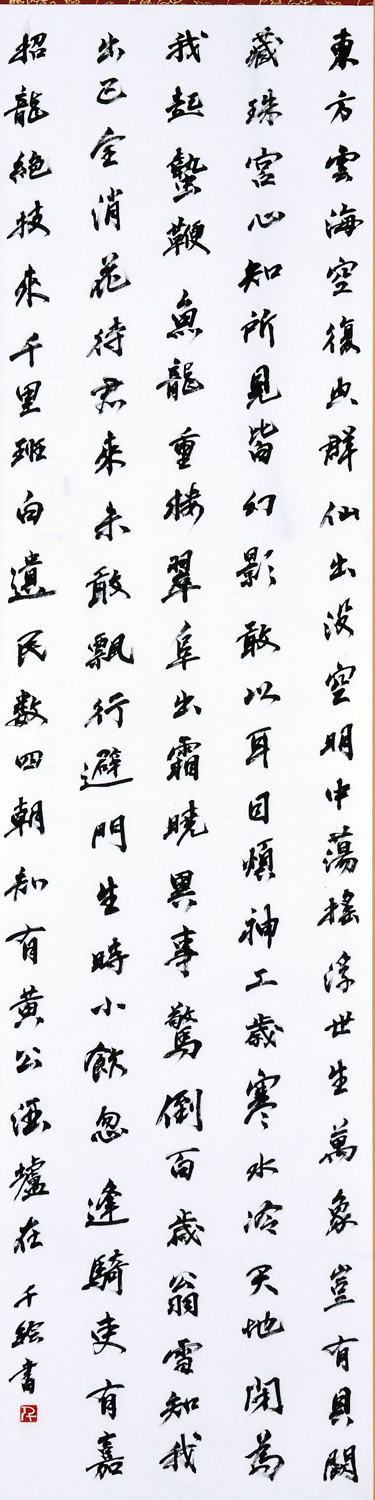 東方雲海空復空群仙出没空明中蕩搖浮世生萬象豈有貝闕
藏珠宮心知所見皆幻影敢以耳目煩神工歳寒水冷天地閉為
我起蟄鞭魚龍重樓翠阜出霜曉異事驚倒百歳翁雪知我
出已全消花待君來未敢飄行避門生時小飲忽逢騎吏有嘉
招龍絶技來千里班白遺民数四朝知有黄公酒壚在 千絵書